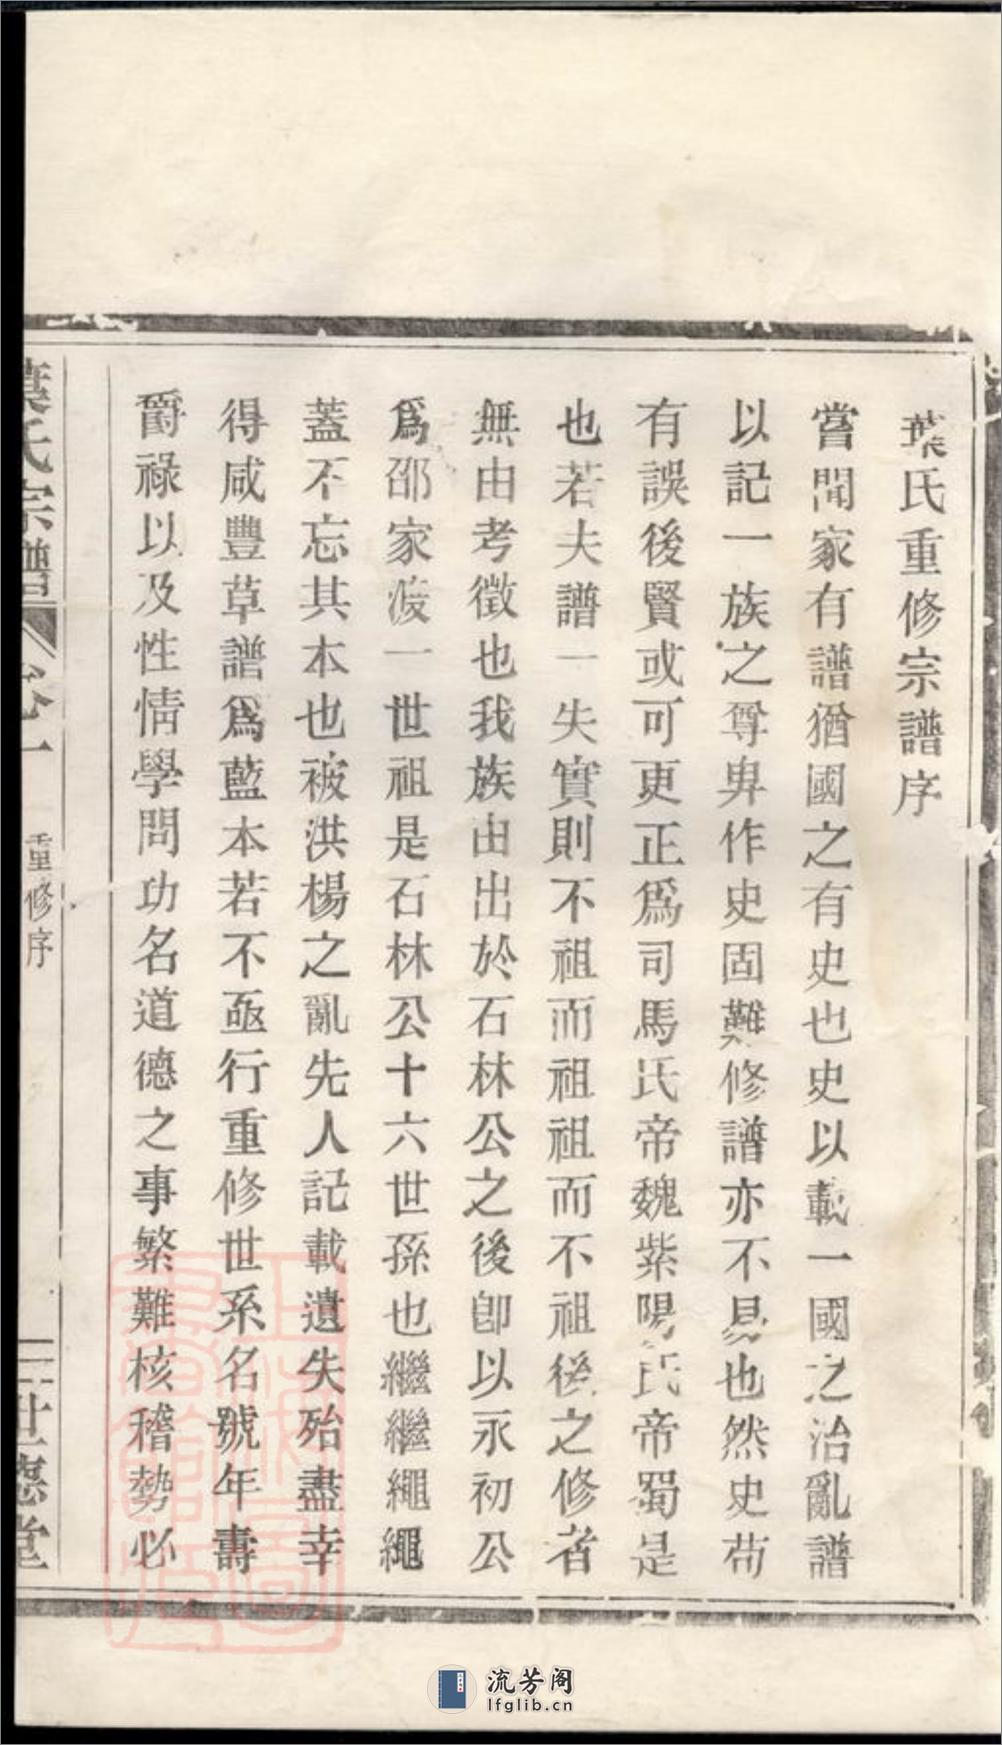 葉氏重修宗譜序
嘗聞家有譜猶國之有史也史以載一國之治亂譜
以記一族之尊卑作史固難修譜亦不易也然史苟
有誤後賢或可更正爲司馬氏帝魏紫陽氏帝蜀是
也若夫譜一失實則不祖而祖祖而不祖後之修者
無由考徵也我族由出於石林公之後卽以永初公
爲邵家渡一世祖是石林公十六世孫也繼繼繩繩
蓋不忘其本也被洪楊之亂先人記載遺失殆盡幸
得咸豐草譜爲藍本若不亟行重修世系名號年壽
爵祿以及性情學問功名道德之事繁難核稽勢必
葉氏宗譜 卷一 重修序 世德堂
流芳阁
lfglib.cn